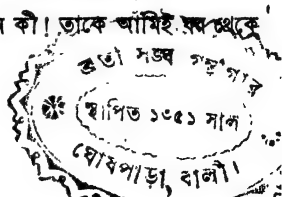 কী! তাকে আমিই ঘর থেকে
ব্রতী সঙ্ঘ গ্রন্থাগার
স্থাপিত ১৩৫১ সাল
ঘোষপাড়া, বালী।